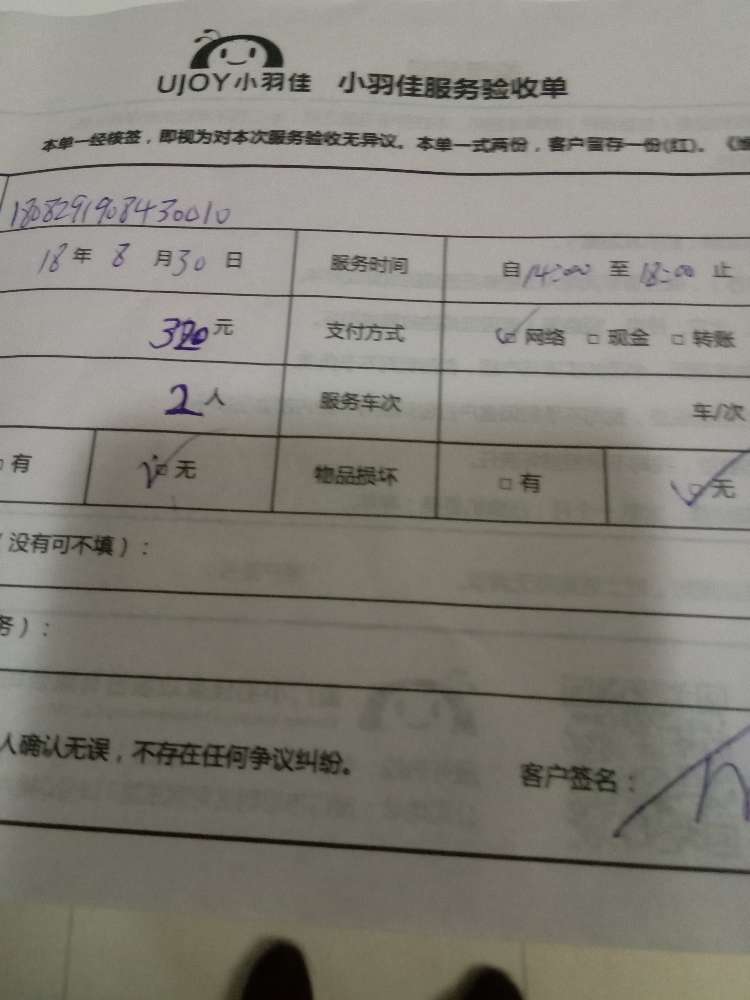 UJOY小羽佳 小羽佳服务验收单
本单一经核签，即视为对本次服务验收无异议。本单一式两份，客户留存一份(红)。《
1808291908430010
18年 8月30日 服务时间 自14:00至18:00止
元 支付方式 ☑网络 □现金 □转账
2人 服务车次 车/次
□有 ☑无 物品损坏 □有 ☑无
（没有可不填）：
务）：
人确认无误，不存在任何争议纠纷。
客户签名：